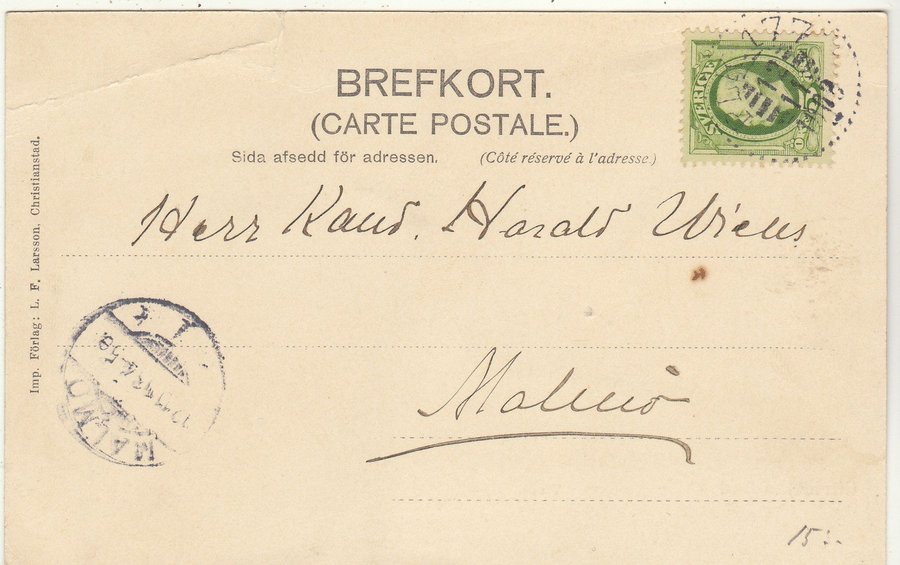 BREFKORT.
(CARTE POSTALE.)
Sida afsedd för adressen. (Côté réservé à l'adresse.)
SVERIGE
Herr Kand. Harald Wiens
Malmö
Imp. Förlag: L. F. Larsson, Christianstad.
MALMÖ
15:-